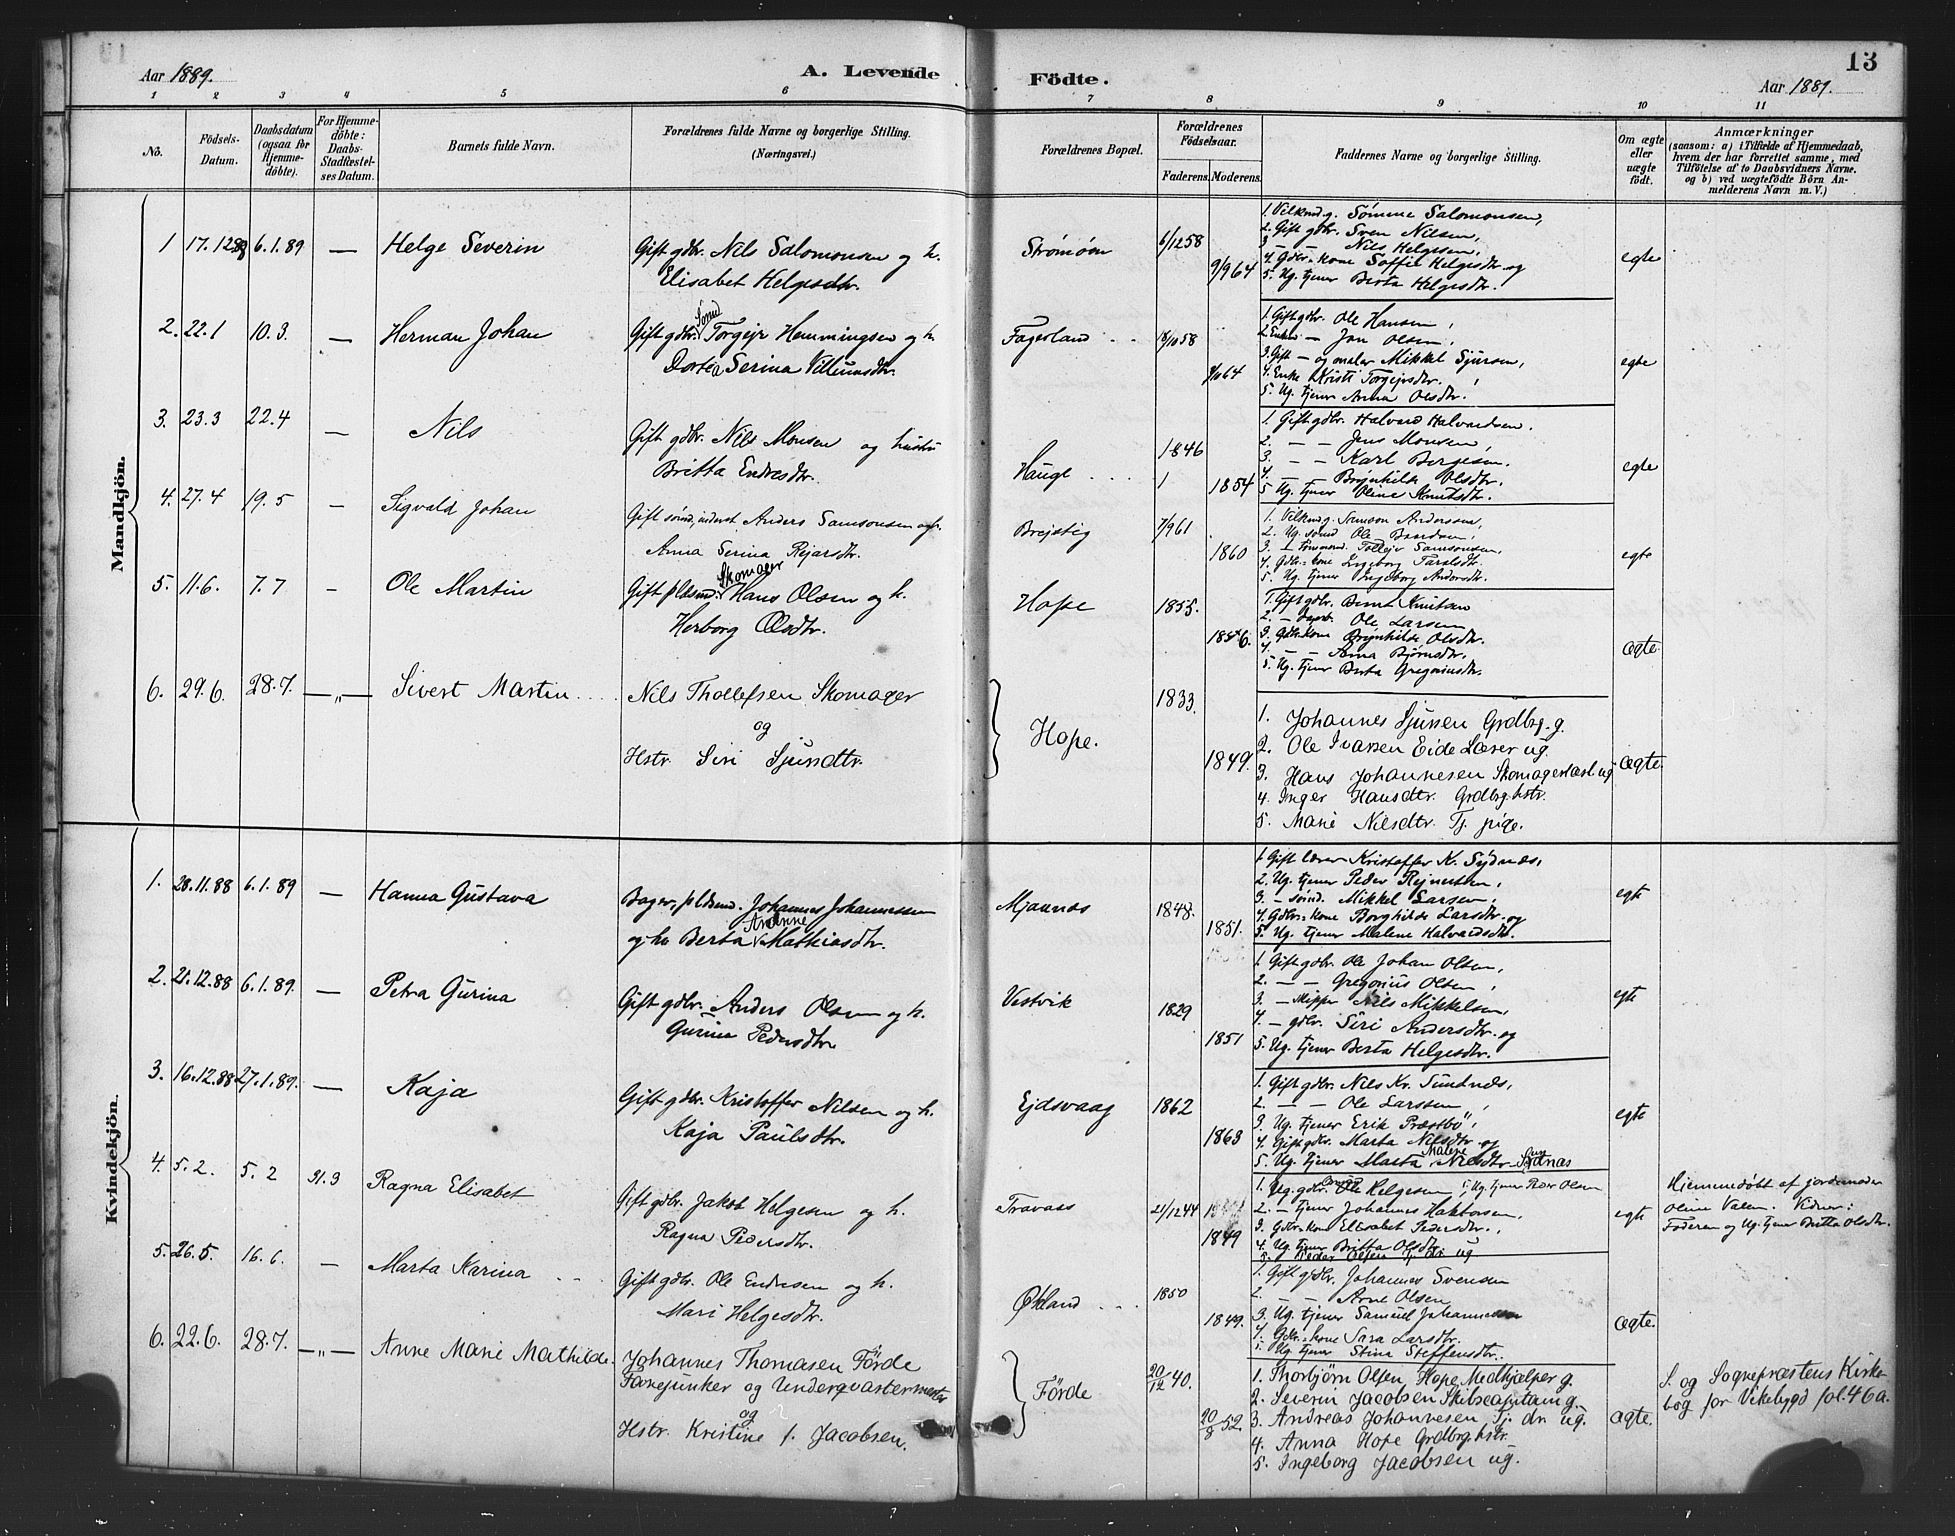 Aar 1889.
A. Levende
Födte.
13
Aar 1889.
1 2 3 4 5 6 7 8 9 10 11
No.
Födsels-Datum.
Daabsdatum (ogsaa for Hjemmedöbte).
For Hjemmedöbte: Daabs-Stadfæstelses Datum.
Barnets fulde Navn.
Forældrenes fulde Navne og borgerlige Stilling. (Næringsvei.)
Forældrenes Bopæl.
Forældrenes Födselsaar.
Faderens. Moderens.
Faddernes Navne og borgerlige Stilling.
Om ægte eller uægte födt.
Anmærkninger
(saasom: a) i Tilfælde af Hjemmedaab, hvem der har forrettet samme, med Tilföielse af to Daabsvidners Navne. og b) ved uægtefödte Börn Anmelderens Navn m. V.)
Mandkjön.
1 17.12.88 6.1.89 — Helge Severin
Gift gdbr. Nils Salomonsen og h.
Elisabet Helgesdtr.
Strømøen 6/12 58 9/9 64
1. Vilkmd. g. Sømme Salomonsen,
2. Gift gdbr. Sven Nilsen,
3 — — Nils Helgesen,
4. Gdbr.-kone Soffie Helgesdtr. og
5. Ug. tjener Berta Helgesdtr.
egte
2. 22.1 10.3. — Herman Johan
Gift gdbr. Torgejr Hemmingsen og h.
Dortea Serina Villumsdtr.
Fagerland
1. Gift gdbr. Ole Hansen,
2. Enkem. — Jon Olsen,
3. Gift — og maler Mikkel Sjursen,
4. Enke Kristi Torgejrsdtr.,
5. Ug. tjener Anna Olsdtr.
egte
3. 23.3 22.4 — Nils
Gift gdbr. Nils Monsen og hustru
Britta Endresdtr.
Hauge 1846 1854
1. Gift gdbr. Halvard Halvardsen.
2. — — Jens Monsen,
3. — — Karl Børgesen.
4. — — Brynhilde Olsdtr.
5 Ug. tjener Oline Knutsdtr.
egte
4. 27.4 19.5 — Sigvald Johan
Gift sømd, inderst Anders Samsonsen og h.
Anna Serina Rejarsdtr.
Brejstig 7/9 61 1860
1. Vilkmd g. Samson Anderssen,
2. Ug. sømd Ole
3. — Tollejv Samsonsen,
4. Gdbr.-kone Ingeborg
5. Ug. tjener Ingeborg Andersdtr.
egte
5. 11.6. 7.7 - Ole Martin
Skomager
Gift pldsmd. Hans Olsen og h.
Herborg Olsdtr.
Hope 1855. 1856.
1. Gift gdbr. Bernt Knutsen
2. — Ole Larsen
3. Gdbr.kone Brynhilde Olsdtr.
4. — — Anna Bjørnsdtr.
5. Ug. tjener Berta Gregoriusdtr.
ægte.
6. 29.6. 28.7. —„— Sivert Martin
Nils Thollefsen Skomager
og
Hstr. Siri Sjursdtr.
Hope. 1833. 1849.
1. Johannes Sjursen Grdbrg. g.
2. Ole Ivarsen Eide Lærer ug.
3. Hans Johannesen Skomagerlærl. ug
4. Inger Hansdtr. Grdbrg. hstr.
5. Marie Nilsdtr. Tj. pige.
ægte.
Kvindekjön.
1. 28.11.88 6.1.89 — Hanna Gustava
Bager, pldsmd. Johannes Johannessen
og h. Berta Marianne Mathiasdtr.
Mjaanæs 1848. 1851.
1. Gift lærer Kristoffer K. Sydnæs,
2. Ug. tjener Peder Rejnertsen,
3. — sømd. Mikkel Larsen,
4. Gdbr.-kone Borghilde Larsdtr. og
5. Ug. tjener Malene Halvardsdtr.
egte
2. 21.12.88 6.1.89. — Petra Gurina
Gift gdbr. Anders Olsen og h.
Gurina Pedersdtr.
Vestvik 1829 1851
1. Gift gdbr. Ole Johan Olsen,
2. — — Gregorius Olsen,
3. — Skipper Nils Mikkelsen,
4. — gdbr. Siri Andersdtr. og
5. Ug. tjener Berta Helgesdtr.
egte
3. 16.12.88 27.1.89. — Kaja
Gift gdbr. Kristoffer Nilsen og h.
Kaja Paulsdtr.
Ejdsvaag 1862 1863
1. Gift gdbr. Nils Kr. Sundnæs,
2. — — Ole Larssen,
3. Ug. tjener Erik Præstbö,
4. Gift gdbr. Marta Nilsdtr. og
5. Ug. tjener Marta Malene Nilsdtr. Sydnæs
egte
4. 5.2. 5.2 31.3 Ragna Elisabet
Gift gdbr. Jakob Helgesen og h.
Ragna Pedersdtr.
Travaas 21/12 44 1849
1. Ug. gdbr. Ole Helgesen, Ug. tjener Peder Olsen
2. — tjener Johannes Haktorsen,
3. Gdbr.-kone Elisabet Pedersdtr.,
4. Ug. tjener Britta Olsdtr.
5. Peder Olsen Tj. dr. ug
egte
Hjemmedøbt af jordemoder
Oline Valen. Vidner:
Faderen og Ug. tjener Britta Olsdtr.
5. 26.5. 16.6. — Marta Karina
Gift gdbr. Ole Endresen og h.
Mari Helgesdtr.
Økland 1850 1849.
1. Gift gdbr. Johannes Svensen
2. — — Arne Olsen
3. Ug. tjener Samuel Johannessen
4. Gdbr.-kone Sara Larsdtr.
5. Ug. tjener Stina Steffensdtr.
ægte.
6. 22.6. 28.7. —„— Anne Marie Mathilde.
Johannes Thomasen Förde
Fanejunker og Underqvartermester
og
Hstr. Kristine f. Jacobsen.
Förde 20/12 40. 20/8 52.
1. Thorbjörn Olsen Hope Medhjelper g.
2. Severin Jacobsen Skibscapitain g.
3. Andreas Johannesen Tj. dr. ug.
4. Anna Hope Grdbrg. hstr.
5. Ingeborg Jacobsen ug.
ægte.
S. og Sognepræstens Kirke-
bog for Vikebygd fol. 46a.